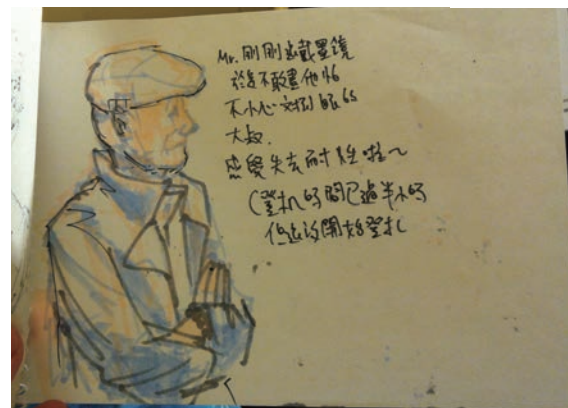 Mr. 剛剛還戴墨鏡
於是不敢畫他怕
不小心對到眼的
大叔.
感覺失去耐性啦~
(登机時間已過半小時
但还沒開始登机